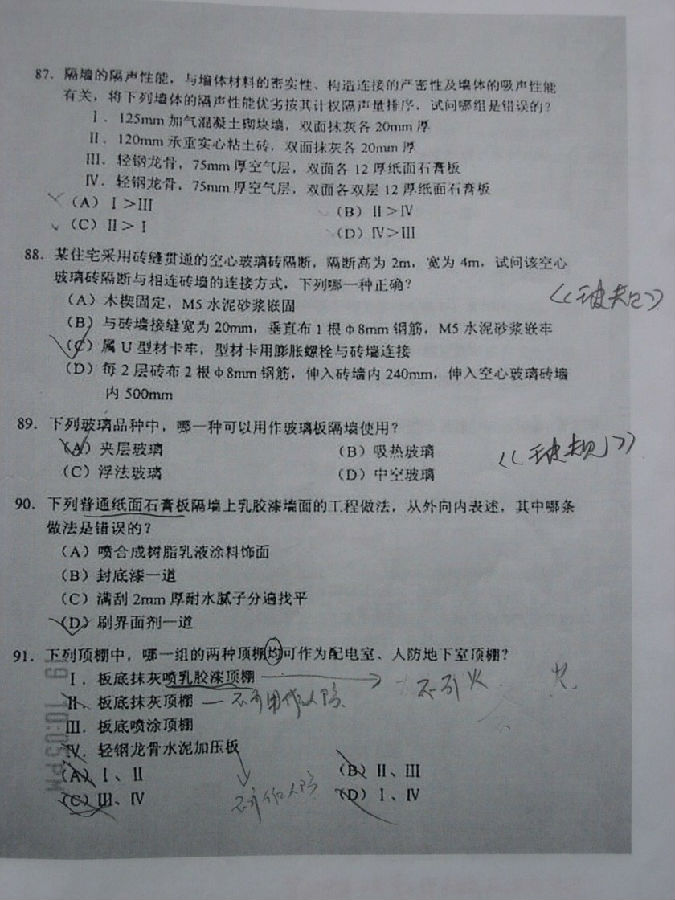 87. 隔墙的隔声性能，与墙体材料的密实性、构造连接的严密性及墙体的吸声性能
有关，将下列墙体的隔声性能优劣按其计权隔声量排序，试问哪组是错误的？
Ⅰ. 125mm 加气混凝土砌块墙，双面抹灰各 20mm 厚
Ⅱ. 120mm 承重实心粘土砖，双面抹灰各 20mm 厚
Ⅲ. 轻钢龙骨，75mm 厚空气层，双面各 12 厚纸面石膏板
Ⅳ. 轻钢龙骨，75mm 厚空气层，双面各双层 12 厚纸面石膏板
（A）Ⅰ＞Ⅲ （B）Ⅱ＞Ⅳ
（C）Ⅱ＞Ⅰ （D）Ⅳ＞Ⅲ
88. 某住宅采用砖缝贯通的空心玻璃砖隔断，隔断高为 2m，宽为 4m，试问该空心
玻璃砖隔断与相连砖墙的连接方式，下列哪一种正确？
（A）木楔固定，M5 水泥砂浆嵌固
（B）与砖墙接缝宽为 20mm，垂直布 1 根 φ8mm 钢筋，M5 水泥砂浆嵌牢
（C）属 U 型材卡牢，型材卡用膨胀螺栓与砖墙连接
（D）每 2 层砖布 2 根 φ8mm 钢筋，伸入砖墙内 240mm，伸入空心玻璃砖墙
内 500mm
89. 下列玻璃品种中，哪一种可以用作玻璃板隔墙使用？
（A）夹层玻璃 （B）吸热玻璃
（C）浮法玻璃 （D）中空玻璃
90. 下列普通纸面石膏板隔墙上乳胶漆墙面的工程做法，从外向内表述，其中哪条
做法是错误的？
（A）喷合成树脂乳液涂料饰面
（B）封底漆一道
（C）满刮 2mm 厚耐水腻子分遍找平
（D）刷界面剂一道
91. 下列顶棚中，哪一组的两种顶棚均可作为配电室、人防地下室顶棚？
Ⅰ. 板底抹灰喷乳胶漆顶棚
Ⅱ. 板底抹灰顶棚
Ⅲ. 板底喷涂顶棚
Ⅳ. 轻钢龙骨水泥加压板
（A）Ⅰ、Ⅱ （B）Ⅱ、Ⅲ
（C）Ⅲ、Ⅳ （D）Ⅰ、Ⅳ